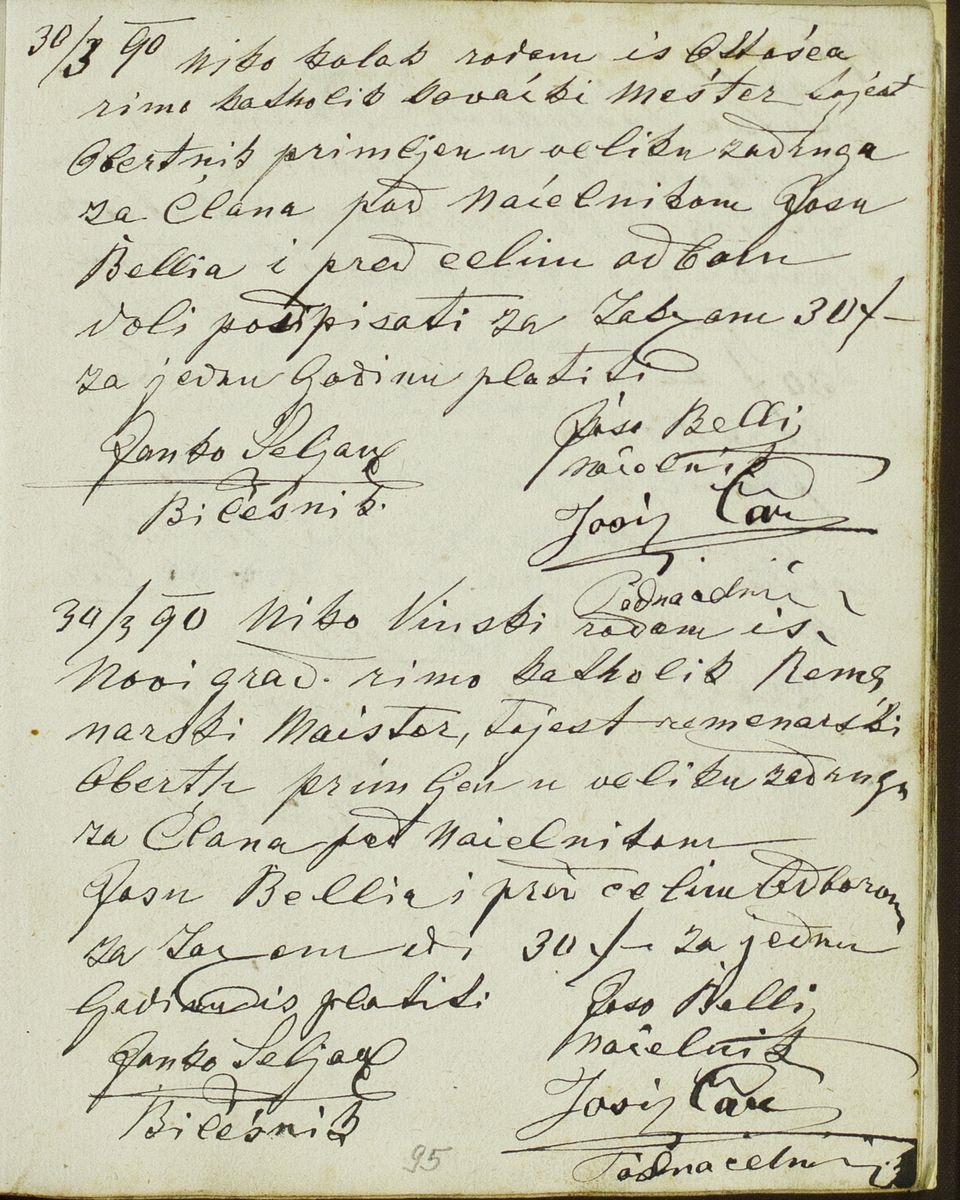 30/3 90 Niko Kolak rođem is Ottośca
rimo katholik kovaćki Meśter tojest
Obertnik primljen u veliku zadruga
za Ćlana pod Naćelnikom Jośu
Bellia i pred celim odborn
voli podpisati za 30 f
za jednu Godinu platiti
Janko Seljan
Bileśnik
Joso Belli
Naćelnik
Josip Car
Podnaćelnik
30/3 90 Niko Vinski rođem is
Novigrad. rimo katholik Reme
narski Maistor, tojest remenarśki
Oberth primljen u veliku zadruga
za Ćlana pod Naćelnikom
Josu Bellia i pred celim Odborom
za 30 f za jednu
Godinu is platiti
Joso Belli
Janko Seljan
Naćelnik
Bileśnik
Josip Car
Podnaćelnik
95